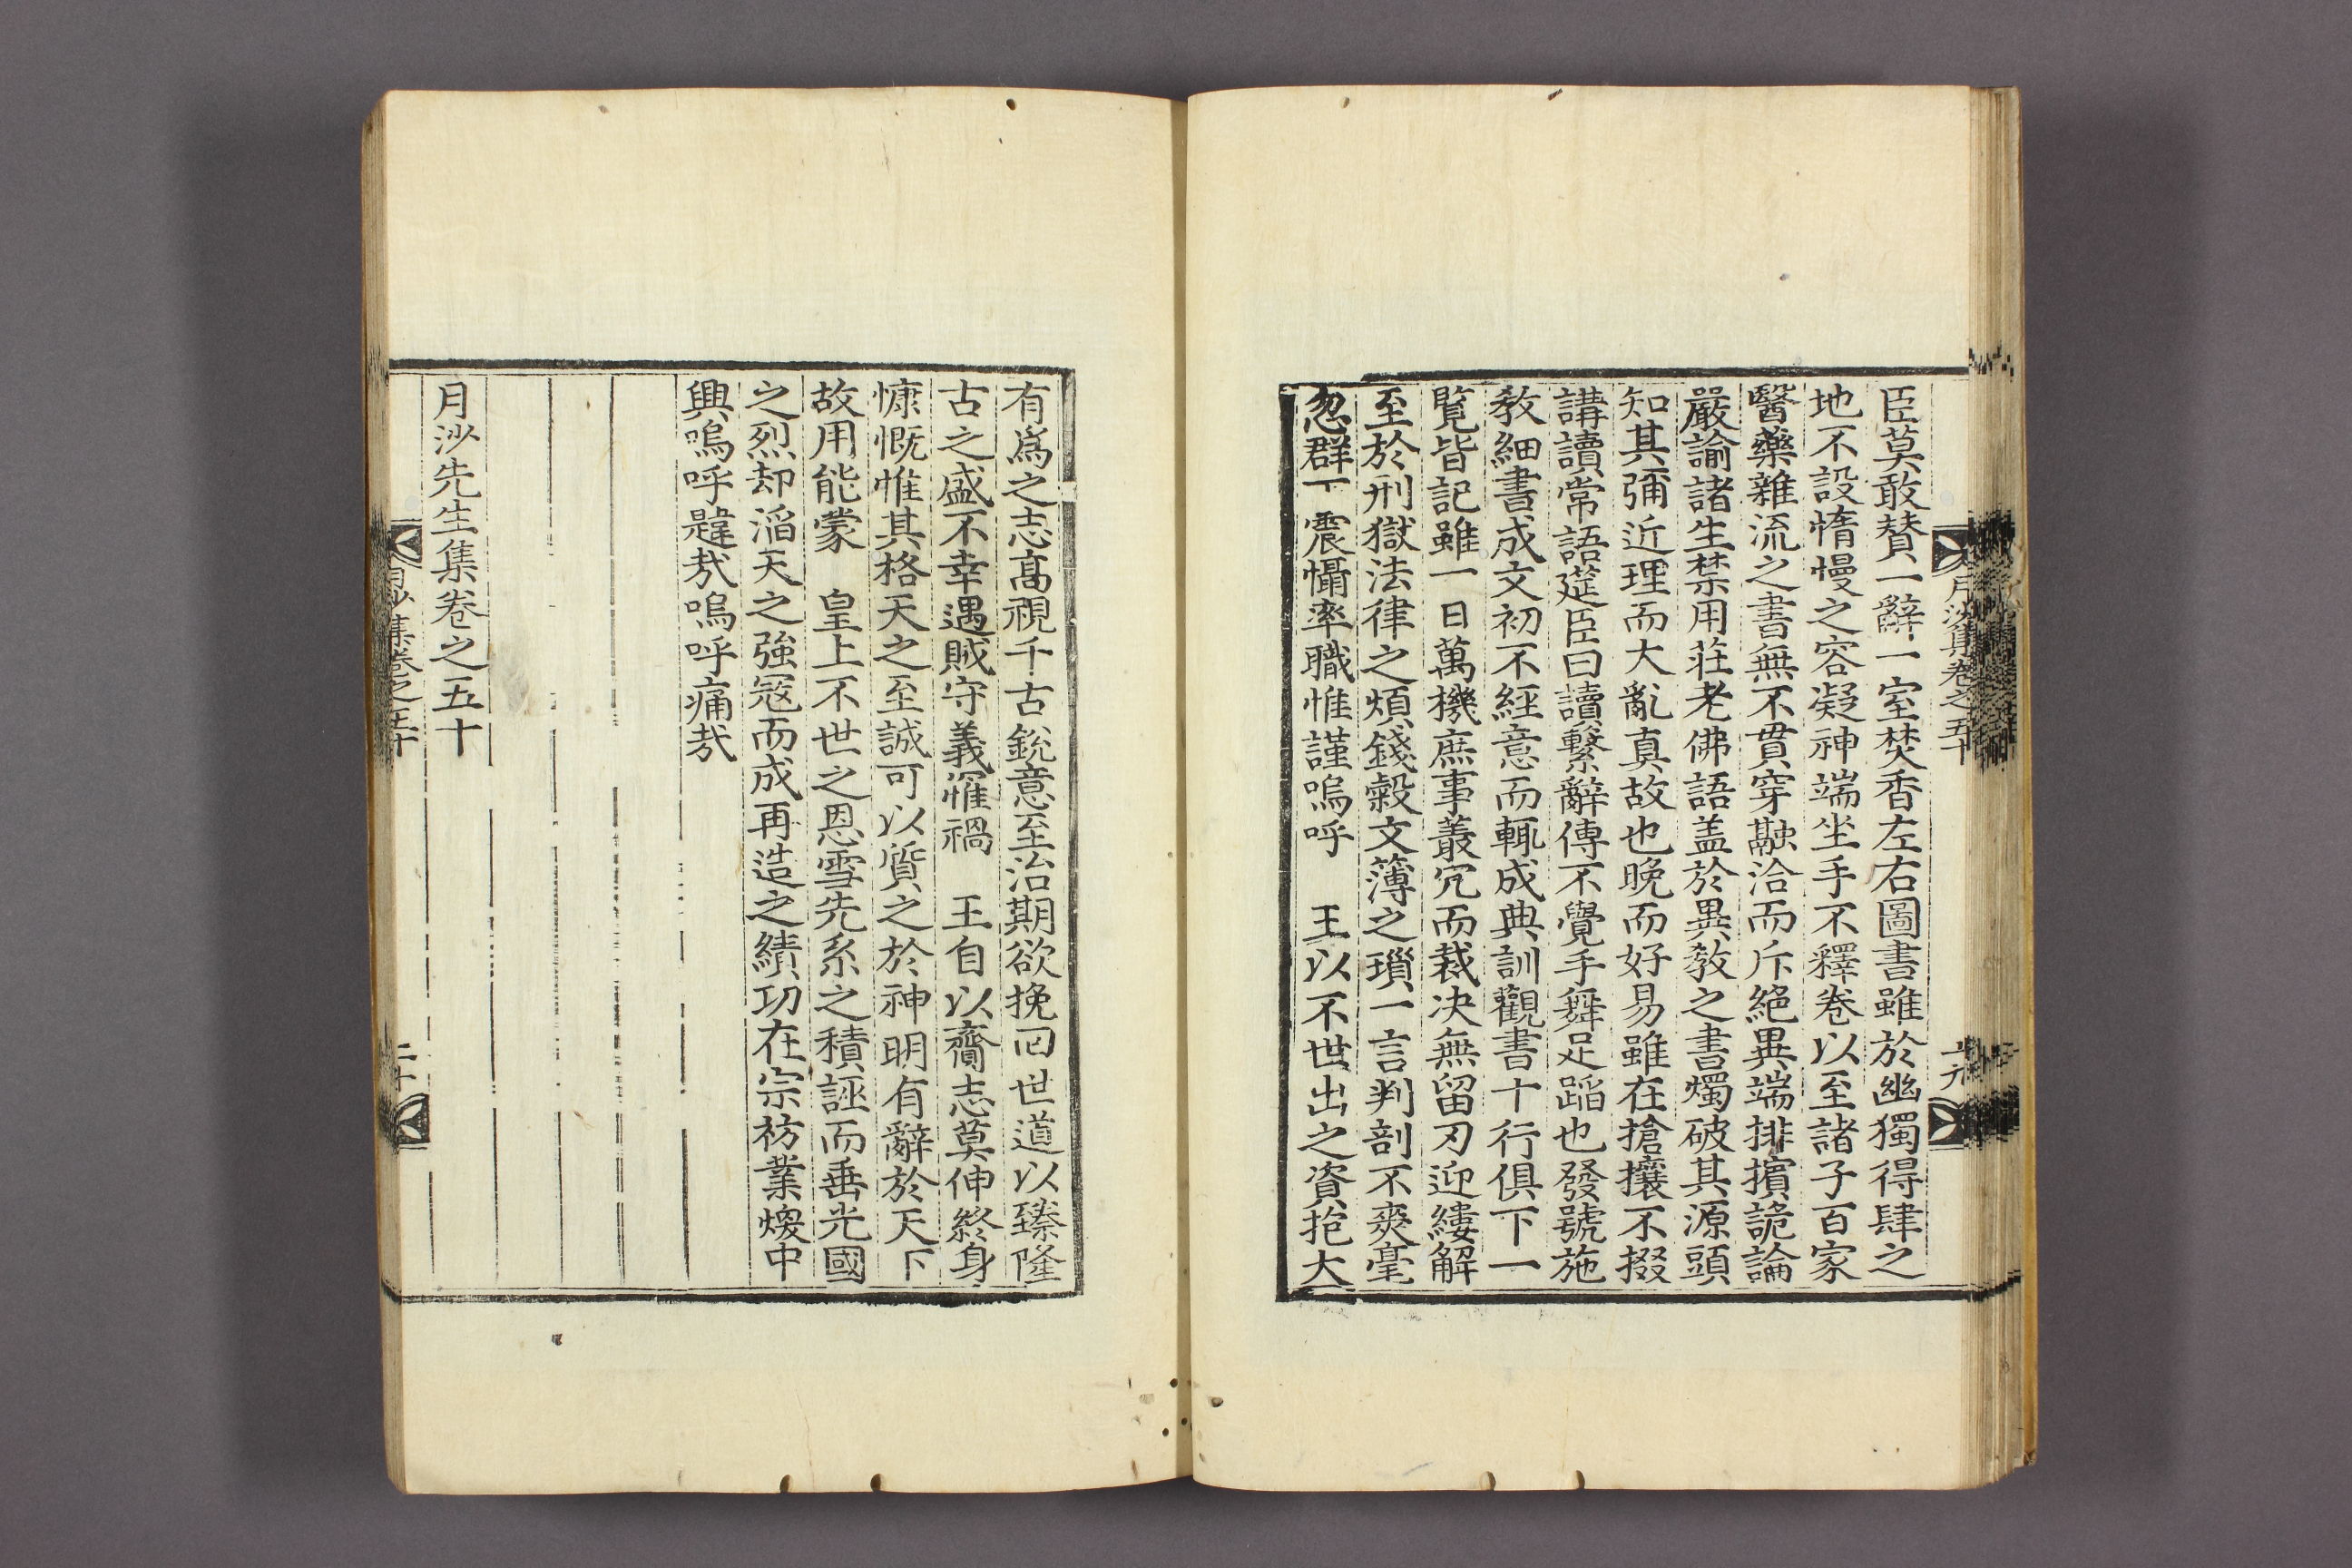 月沙集卷之五十
十九
臣莫敢贊一辭一室焚香左右圖書雖於幽獨得肆之
地不設惰慢之容凝神端坐手不釋卷以至諸子百家
醫藥雜流之書無不貫穿融洽而斥絶異端排擯詭論
嚴諭諸生禁用莊老佛語盖於異敎之書燭破其源頭
知其彌近理而大亂真故也晩而好易雖在搶攘不掇
講讀常語筵臣曰讀繫辭傳不覺手舞足蹈也發號施
敎細書成文初不經意而輒成典訓觀書十行俱下一
覧皆記雖一日萬機庶事叢宂而裁决無留刃迎縷解
至於刑獄法律之煩錢穀文簿之瑣一言判剖不爽毫
忽群下震懾率職惟謹嗚呼　王以不世出之資抱大
有爲之志高視千古銳意至治期欲挽回世道以臻隆
古之盛不幸遇賊守義罹禍　王自以齎志莫伸終身
慷慨惟其格天之至誠可以質之於神明有辭於天下
故用能蒙　皇上不世之恩雪先系之積誣而垂光國
之烈却滔天之強冦而成再造之績功在宗祊業煥中
興嗚呼韙哉嗚呼痛哉
月沙先生集卷之五十
月沙集卷之五十
二十